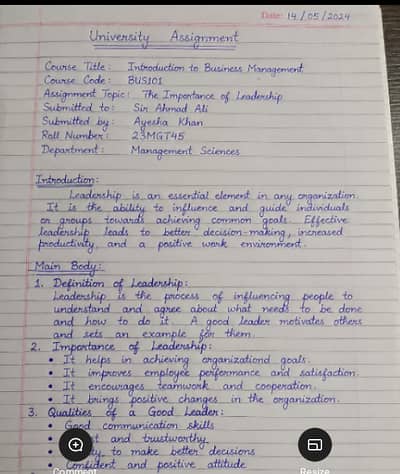 Date: 14/05/2024
University Assignment
Course Title: Introduction to Business Management
Course Code: BUS101
Assignment Topic: The Importance of Leadership
Submitted to: Sir Ahmad Ali
Submitted by: Ayesha Khan
Roll Number: 23MGT45
Department: Management Sciences
Introduction:
Leadership is an essential element in any organization.
It is the ability to influence and guide individuals
or groups towards achieving common goals. Effective
leadership leads to better decision-making, increased
productivity, and a positive work environment.
Main Body:
1. Definition of Leadership:
Leadership is the process of influencing people to
understand and agree about what needs to be done
and how to do it. A good leader motivates others
and sets an example for them.
2. Importance of Leadership:
• It helps in achieving organizational goals.
• It improves employee performance and satisfaction.
• It encourages teamwork and cooperation.
• It brings positive changes in the organization.
3. Qualities of a Good Leader:
• Good communication skills
and trustworthy
to make better decisions
• Confident and positive attitude
Comment
Resize